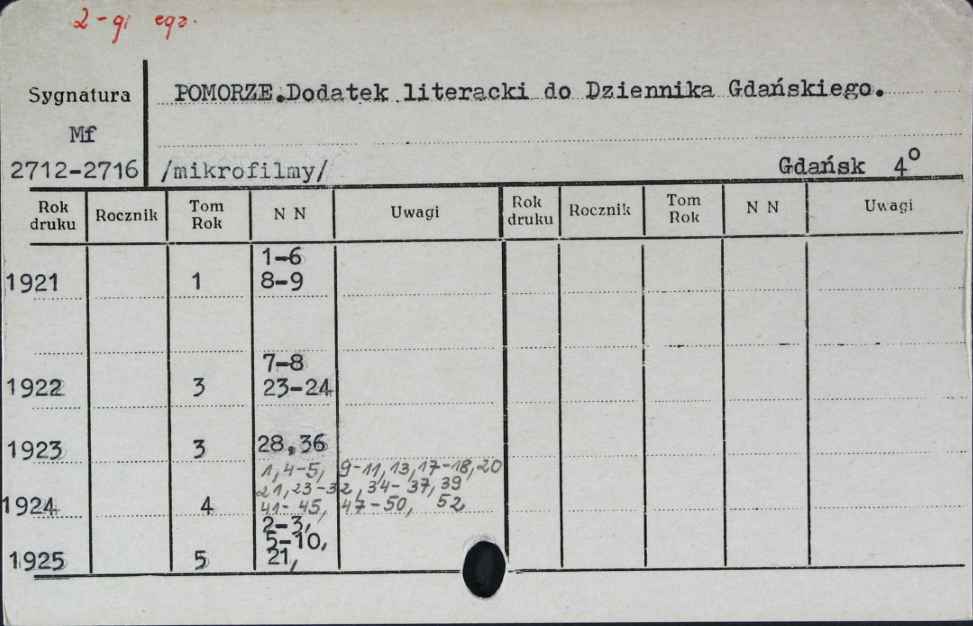 2-gi egz.
Sygnatura
POMORZE.Dodatek literacki do Dziennika Gdańskiego.
Mf
2712-2716 /mikrofilmy/ Gdańsk 4°
Rok druku Rocznik Tom Rok N N Uwagi Rok druku Rocznik Tom Rok N N Uwagi
1-6
1921 1 8-9
7-8
1922 3 23-24
1923 3 28,36
1,4-5, 9-11,13,17-18,20
21,23-32,34-37,39
1924 4 41-45, 47-50, 52
2-3,
5-10,
1925 5 21,